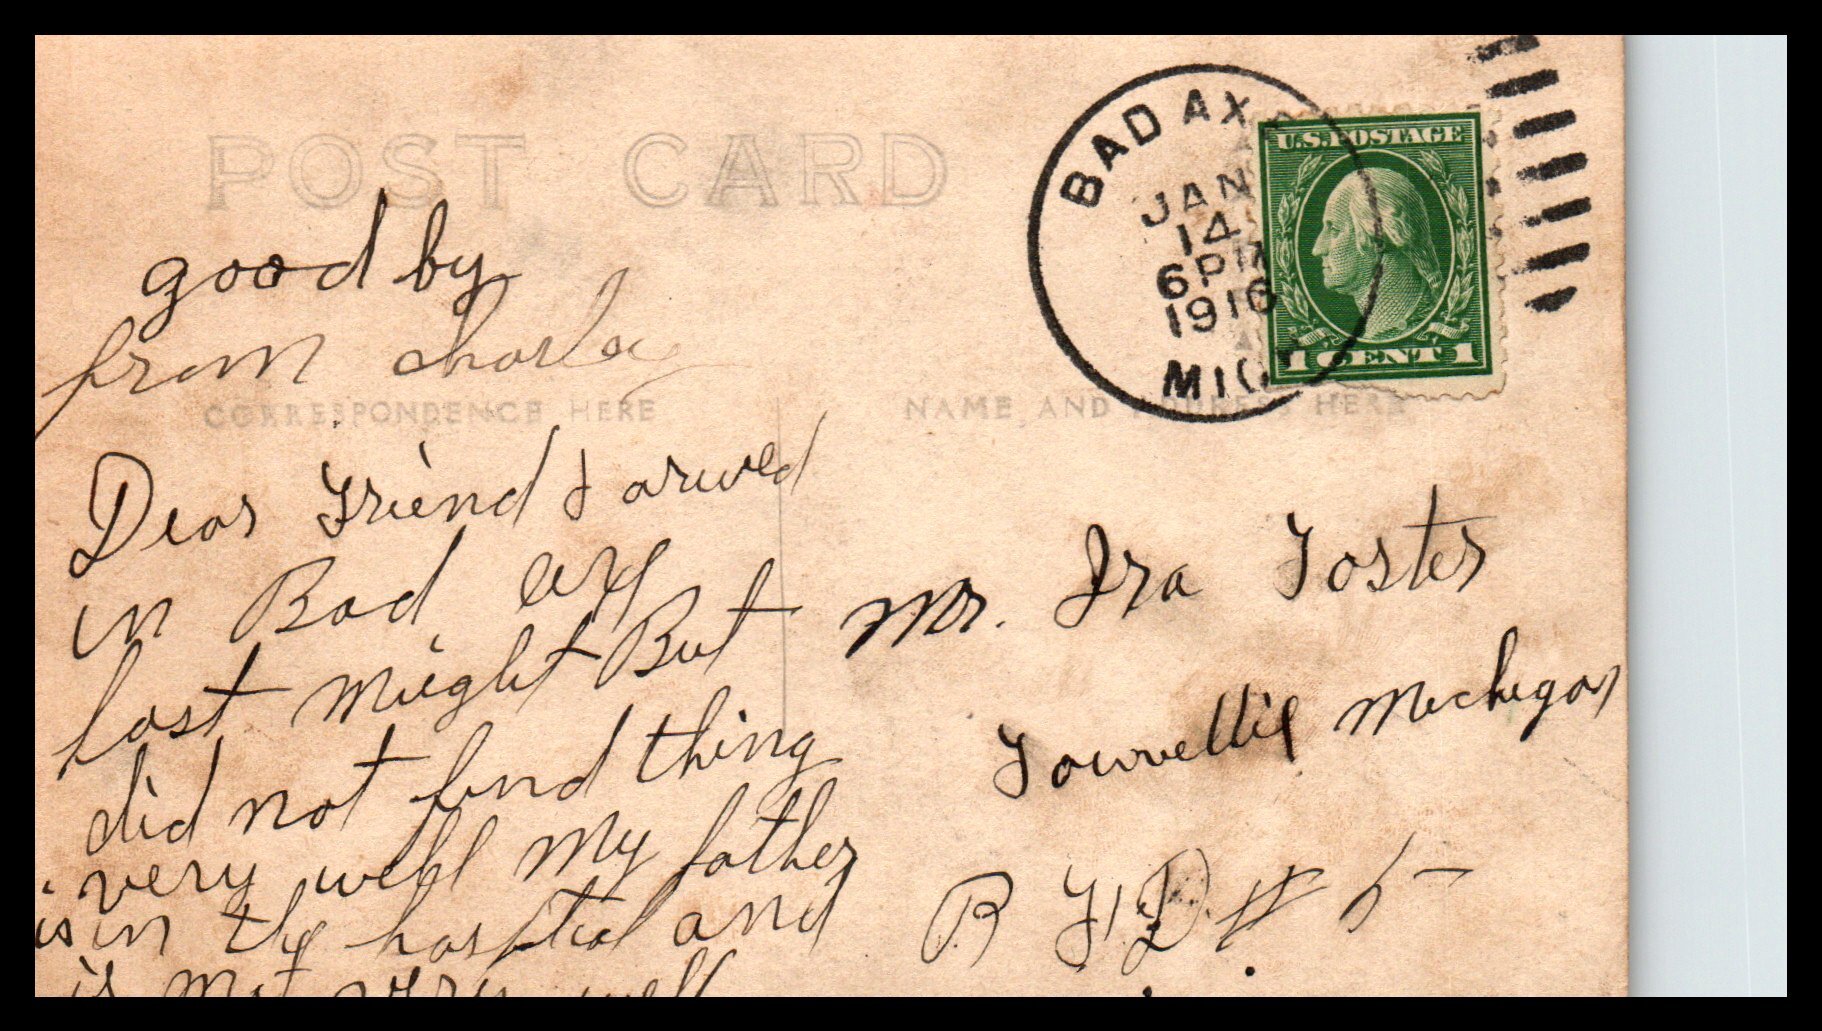 POST CARD
good by
from charla
CORRESPONDENCE HERE
Dear Friend I arived
in Bad axe
last mieght But
did not find thing
very well my father
is in the hospital and
is not very well
BAD AXE
JAN
14
6 PM
1916
MICH
U.S. POSTAGE
1 CENT 1
NAME AND ADDRESS HERE
Mr. Ira Foster
Fowellvil Mechigan
R F D # 5